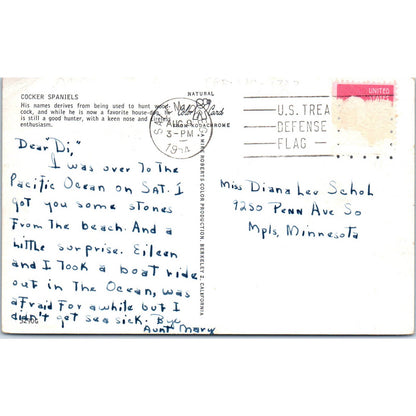 COCKER SPANIELS
His names derives from being used to hunt
cock, and while he is now a favorite house-dog, he
is still a good hunter, with a keen nose and
enthusiasm.
NATURAL
Color Card
FROM KODACHROME
AUG
3-PM
U.S. TREA
DEFENSE
FLAG
UNITED
STATES
Dear Di,"
I was over To The
Pacific Ocean on Sat. I
got you some stones
From the beach. And a
little surprise. Eileen
and I Took a boat ride
out in The Ocean, was
afraid for a while but I
didn't get sea sick. Bye
Aunt Mary
A MIKE ROBERTS COLOR PRODUCTION, BERKELEY 2, CALIFORNIA
Miss Diana Lee Schol
9250 Penn Ave So
Mpls, Minnesota